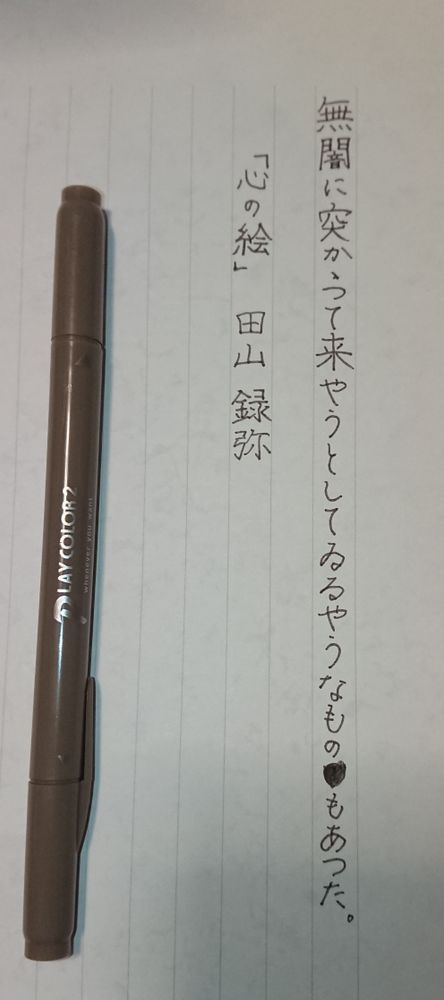 無闇に突かゝつて来やうとしてゐるやうなものもあつた。
「心の絵」 田山 録弥
PLAY COLOR 2
whenever you want